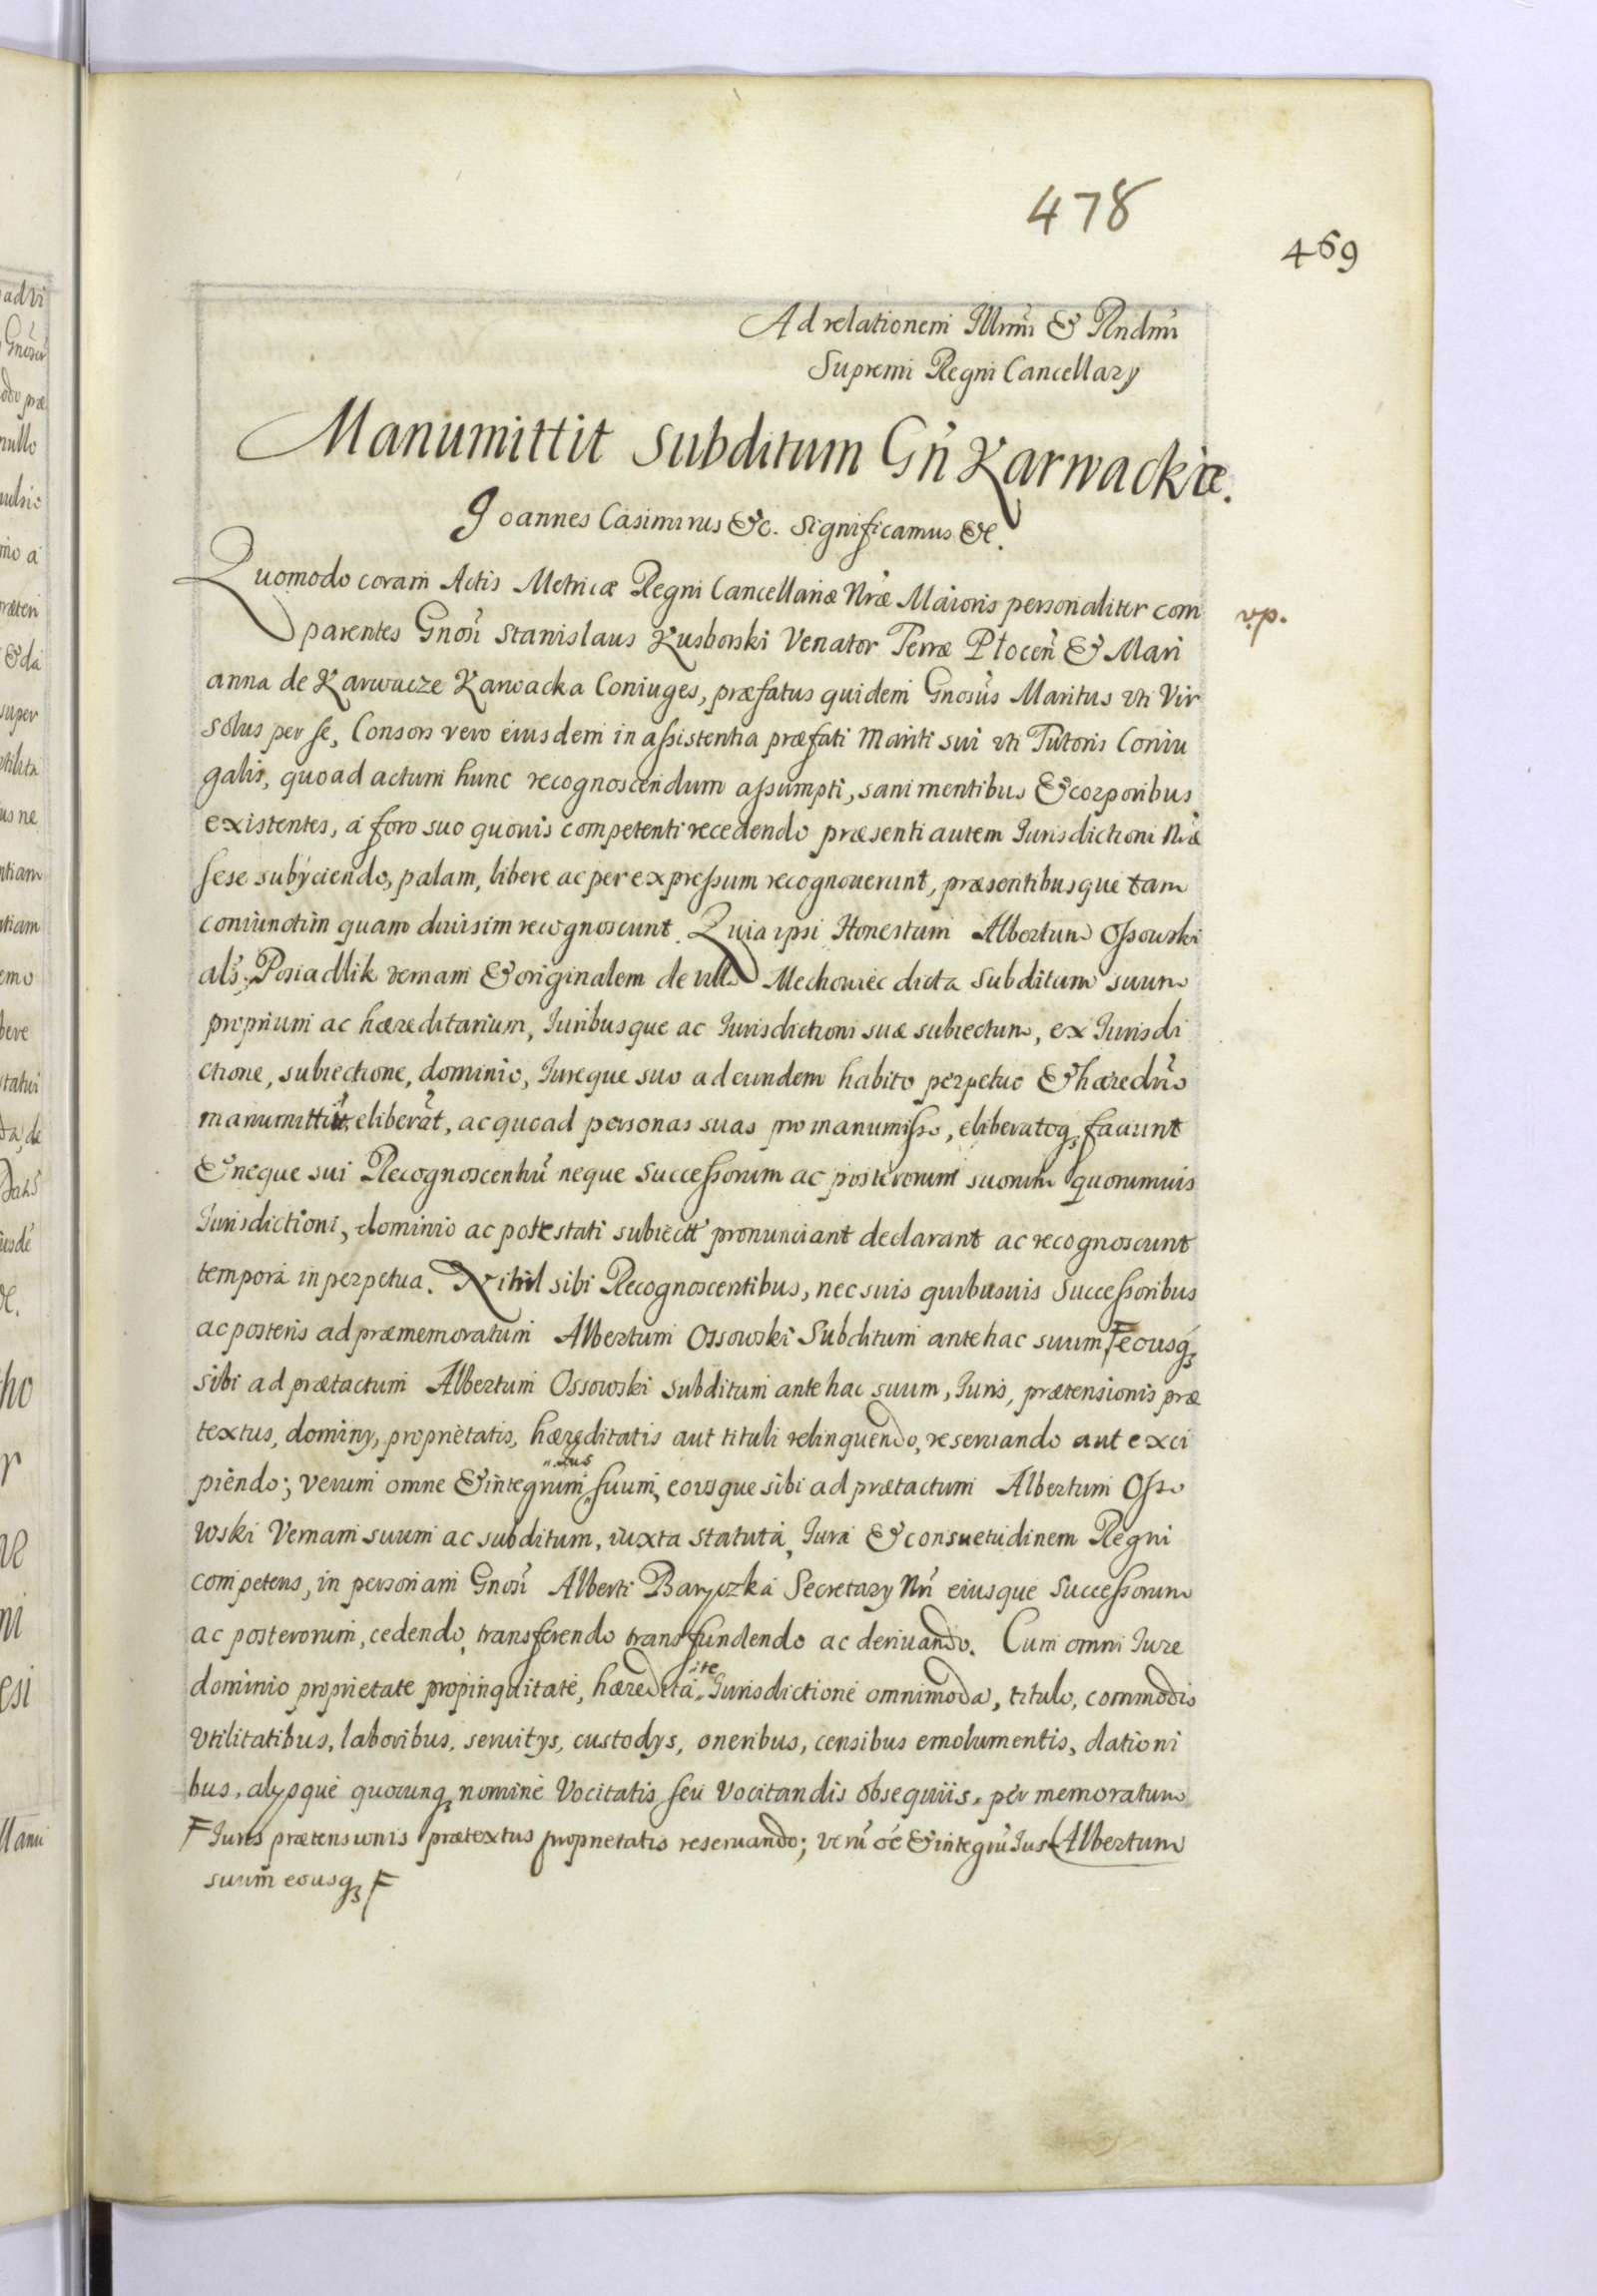 478
469
Ad relationem Illmi & Rndmi
Supremi Regni Cancellarÿ
Manumittit Subditum Gn̄ Karwackiæ.
Joannes Casimirus &c. Significamus &c.
Quomodo coram Actis Metricæ Regni Cancellariæ Nr̄æ Maioris personaliter com
parentes Gnosi Stanislaus Kusborski Venator Terræ Płocen̄ & Mari
anna de Karwacze Karwacka Coniuges, præfatus quidem Gnosus Maritus vti Vir
solus per se, Consors vero eiusdem in assistentia præfati Mariti sui vti Tutoris Coniu
galis, quoad actum hunc recognoscendum assumpti, sani mentibus & corporibus
existentes, a foro suo quovis competenti recedendo præsenti autem Jurisdictioni Nr̄æ
sese subÿciendo, palam, libere ac per expressum recognouerunt, præsentibusque tam
coniunctim quam diuisim recognoscunt. Quia ipsi Honestum Albertum Ossowski
als. Posiadlik vernam & originalem de villa Mechowiec dicta Subditum suum
proprium ac hæreditarium, Juribusque ac Jurisdictioni suæ subiectum, ex Jurisdi
ctione, subiectione, dominio, Jureque suo ad eundem habito perpetuo & hæredrio
manumittut, eliberat, ac quoad personas suas pro manumisso, eliberatoq faciunt
& neque sui Recognoscentiu neque Successorum ac posterorum suorum quorumuis
Jurisdictioni, dominio ac potestati subiectu pronunciant declarant ac recognoscunt
tempora in perpetua. Nihil sibi Recognoscentibus, nec suis quibusuis Successoribus
ac posteris ad præmemoratum Albertum Ossowski Subditum antehac suum F eousq
sibi ad prætactum Albertum Ossowski subditum ante hac suum, Juris, prætensionis præ
textus, dominÿ, proprietatis, hæreditatis aut tituli relinquendo, reseruando aut exci
piendo; verum omne & integrum Jus suum, eousque sibi ad prætactum Albertum Osso
wski Vernam suum ac subditum, iuxta statuta, Jura & consuetudinem Regni
competens, in personam Gnosi Alberti Baryczka Secretarÿ Nri eiusque Successorum
ac posterorum, cedendo, transferendo transfundendo ac deriuando. Cum omni Jure
dominio proprietate propinquitate, hæreditate Jurisdictione omnimoda, titulo, commodis
Vtilitatibus, laboribus, seruitÿs, custodÿs, oneribus, censibus emolumentis, dationi
bus, alÿsque quocunq nomine Vocitatis seu Vocitandis obsequiis, per memoratum
F Juris prætensionis prætextus proprietatis reseruando; verū oē & integrū Jus Albertum
suum eousq F